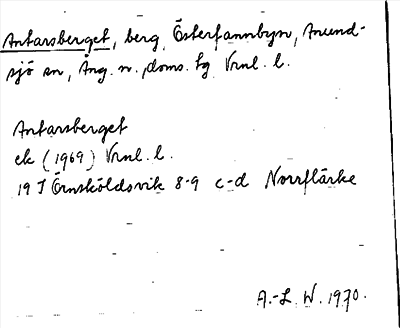 Antarsberget, berg, Österfannbyn, Anund-
sjö sn, Ång. n. doms. tg Vrnl. l.
Antarsberget
ek (1969) Vrnl. l.
19 J Örnsköldsvik 8-9 c-d Norrflärke
A.-L. W. 1970.